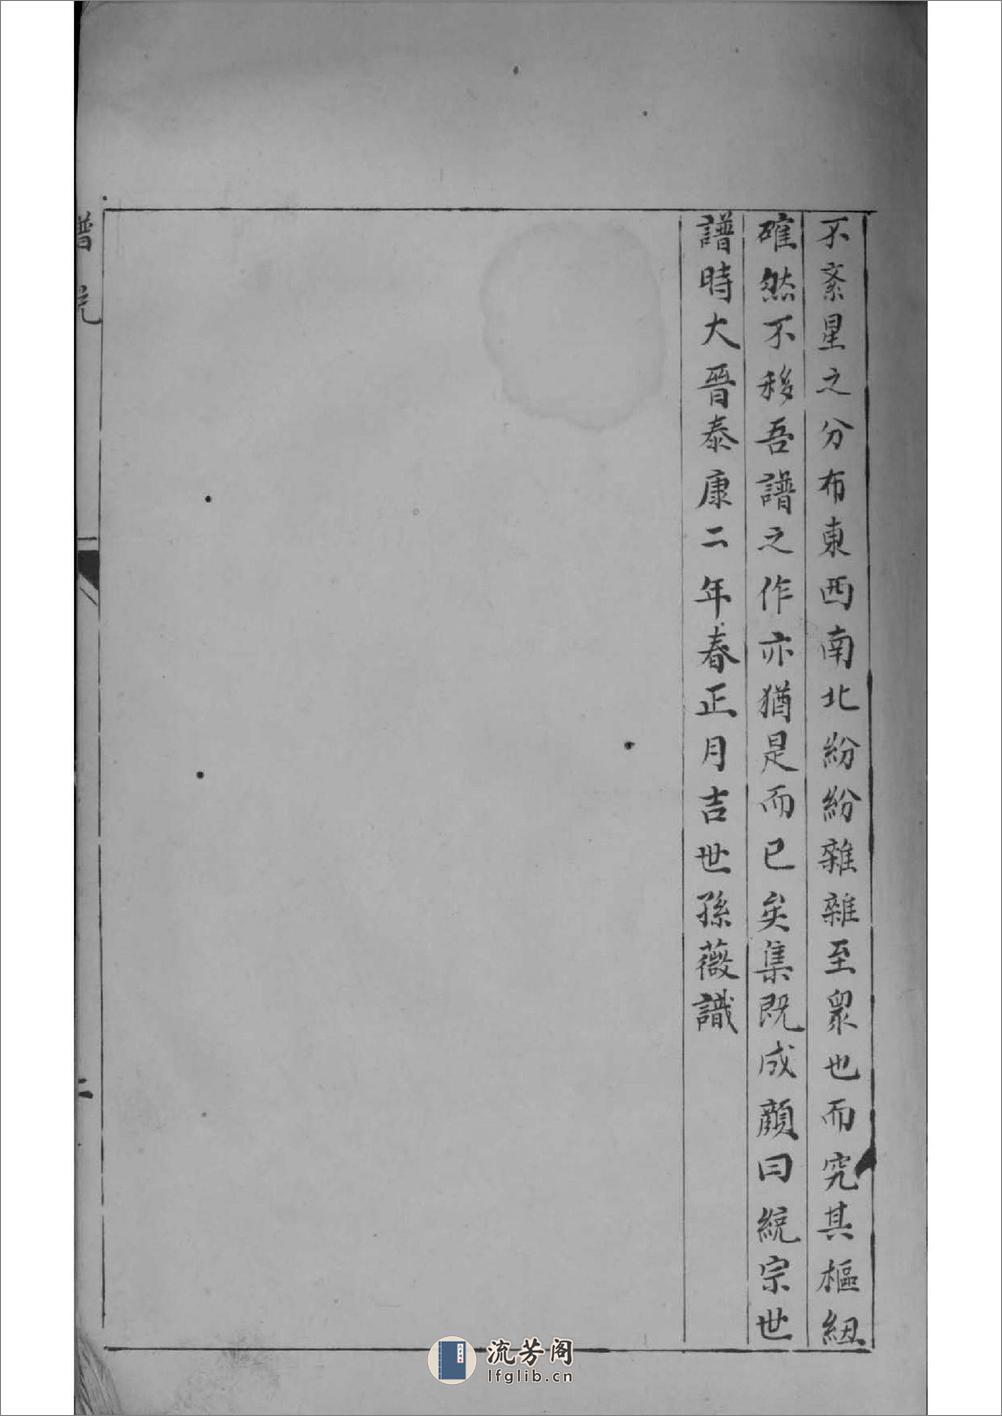 不紊星之分布東西南北紛紛雜雜至眾也而究其樞紐
確然不移吾譜之作亦猶是而已矣集既成顏曰統宗世
譜時大晉泰康二年春正月吉世孫薇識
二
流芳阁
lfglib.cn